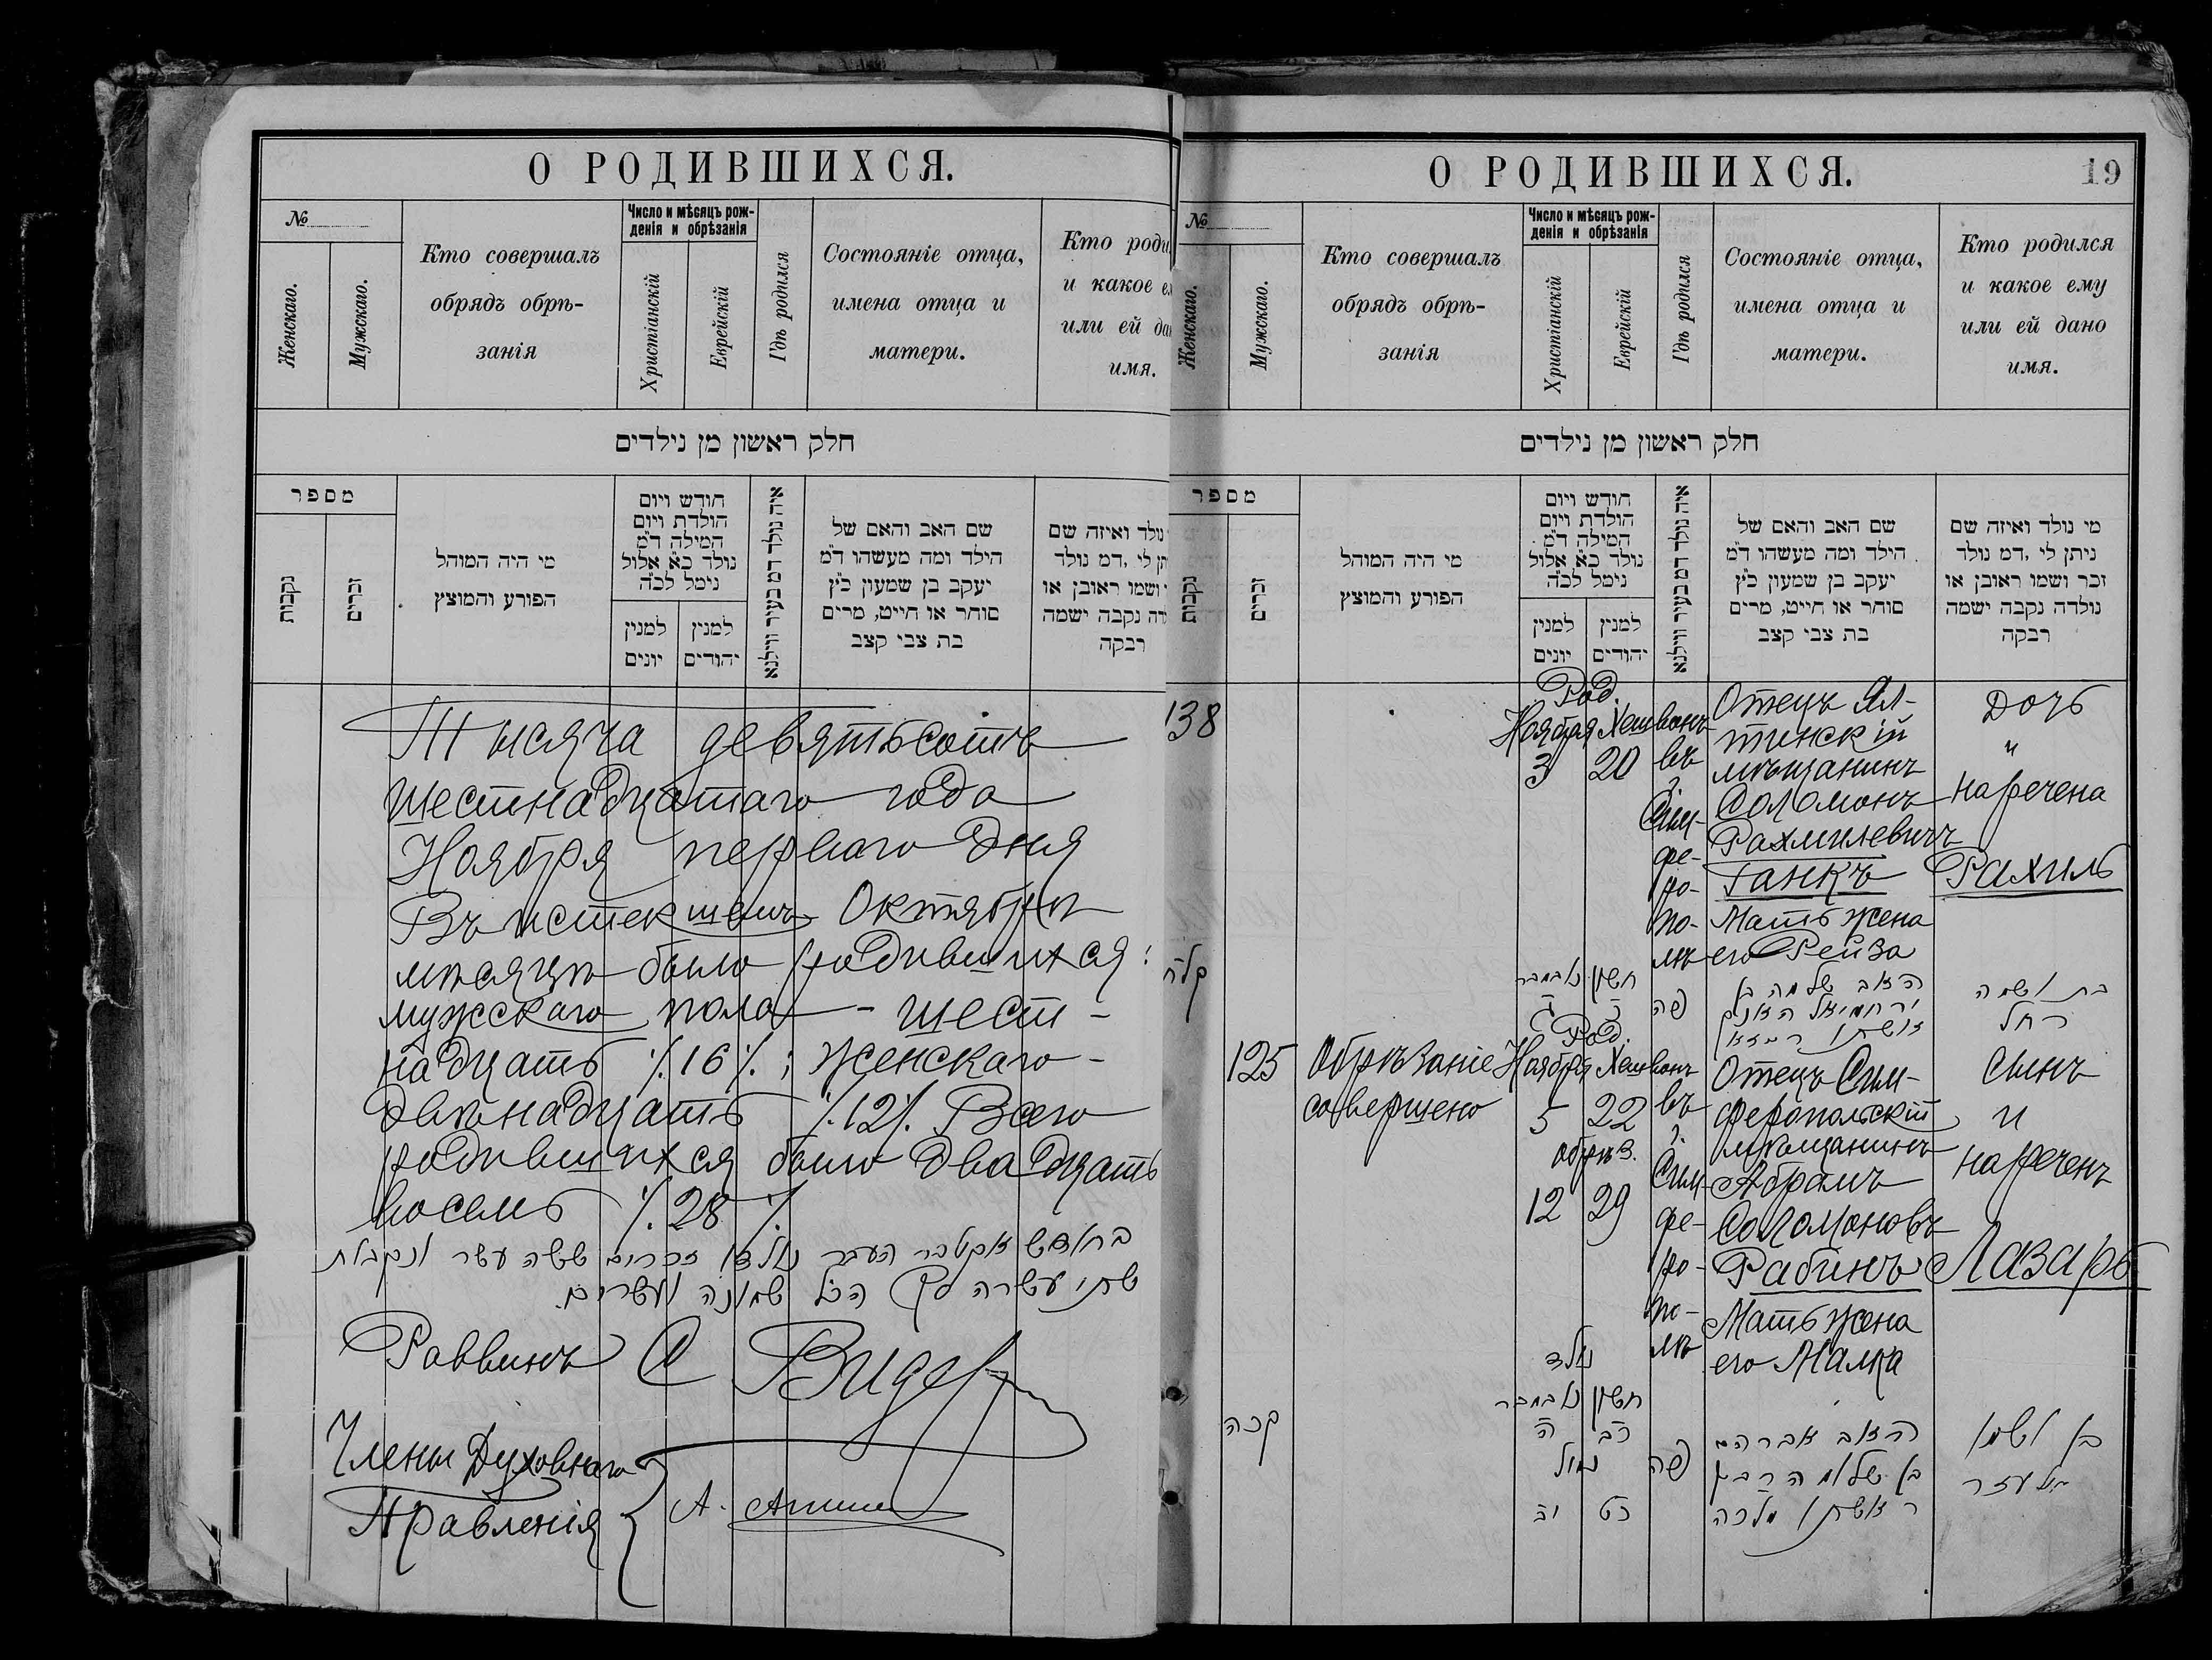 О РОДИВШИХСЯ.
№
Женскаго.
Мужскаго.
Кто совершалъ
обрядъ обрѣ-
занія
Число и мѣсяцъ рож-
денія и обрѣзанія
Христіанскій
Еврейскій
Гдѣ родился
Состояніе отца,
имена отца и
матери.
Кто роди
и какое е
или ей да
имя.
חלק ראשון מן נילדים
מספר
נקבות
זכרים
מי היה המוהל
הפורע והמוצץ
חודש ויום
הולדת ויום
המילה ד״מ
נולד כ״א אלול
נימל לכ״ה
למנין
יונים
למנין
יהודים
איה נולד דמ בעיר ווילנא
שם האב והאם של
הילד ומה מעשהו ד״מ
יעקב בן שמעון כ״ץ
סוחר או חייט, מרים
בת צבי קצב
נולד ואיזה שם
תן לי ,דמ נולד
ושמו ראובן או
דה נקבה ישמה
רבקה
Тысяча девятьсотъ
шестнадцатаго года
Ноября перваго дня
Въ истекшемъ Октябрѣ
мѣсяцѣ было родившихся:
мужскаго пола - шест-
надцать ٪16٪; женскаго -
двѣнадцать ٪12٪. Всего
родившихся было двадцать
восемь ٪28٪
בחודש אקטבר העבר נולדו זכרים ששה עשר ונקבות
שתי עשרה סך הכל שמונה ועשרים.
Раввинъ
Члены Духовнаго
Правленія
О РОДИВШИХСЯ.
19
№
Женскаго.
Мужскаго.
Кто совершалъ
обрядъ обрѣ-
занія
Число и мѣсяцъ рож-
денія и обрѣзанія
Христіанскій
Еврейскій
Гдѣ родился
Состояніе отца,
имена отца и
матери.
Кто родился
и какое ему
или ей дано
имя.
חלק ראשון מן נילדים
מספר
נקבות
זכרים
מי היה המוהל
הפורע והמוצץ
חודש ויום
הולדת ויום
המילה ד״מ
נולד כ״א אלול
נימל לכ״ה
למנין
יונים
למנין
יהודים
איה נולד דמ בעיר ווילנא
שם האב והאם של
הילד ומה מעשהו ד״מ
יעקב בן שמעון כ״ץ
סוחר או חייט, מרים
בת צבי קצב
מי נולד ואיזה שם
ניתן לי ,דמ נולד
זכר ושמו ראובן או
נולדה נקבה ישמה
רבקה
138
Род.
Ноября Хешвонъ
3 20
въ
г.
Сим-
фе-
ро-
по-
лѣ
Отецъ Ял-
тинскій
мѣщанинъ
Соломонъ
Рахмилевичъ
Ганкъ
Мать жена
его Рейза
Дочь
и
наречена
Рахиль
קלח
חשון נאבמבר
פה
האב שלמה בן
בת ושמה
רחל
125
Обрѣзаніе
совершено
Род.
Ноября Хешвонъ
5 22
обрѣз.
12 29
въ
г.
Сим-
фе-
ро-
по-
лѣ
Отецъ Сим-
феропольскій
мѣщанинъ
Абрамъ
Соломоновъ
Рабинъ
Мать жена
его Малка
Сынъ
и
нареченъ
Лазарь
קכה
נולד
חשון נאבמבר
כב ה
נמול
כט יב
פה
האב אברהם
בן שלמה רבין
ואשתו מלכה
בן ושמו
אלעזר